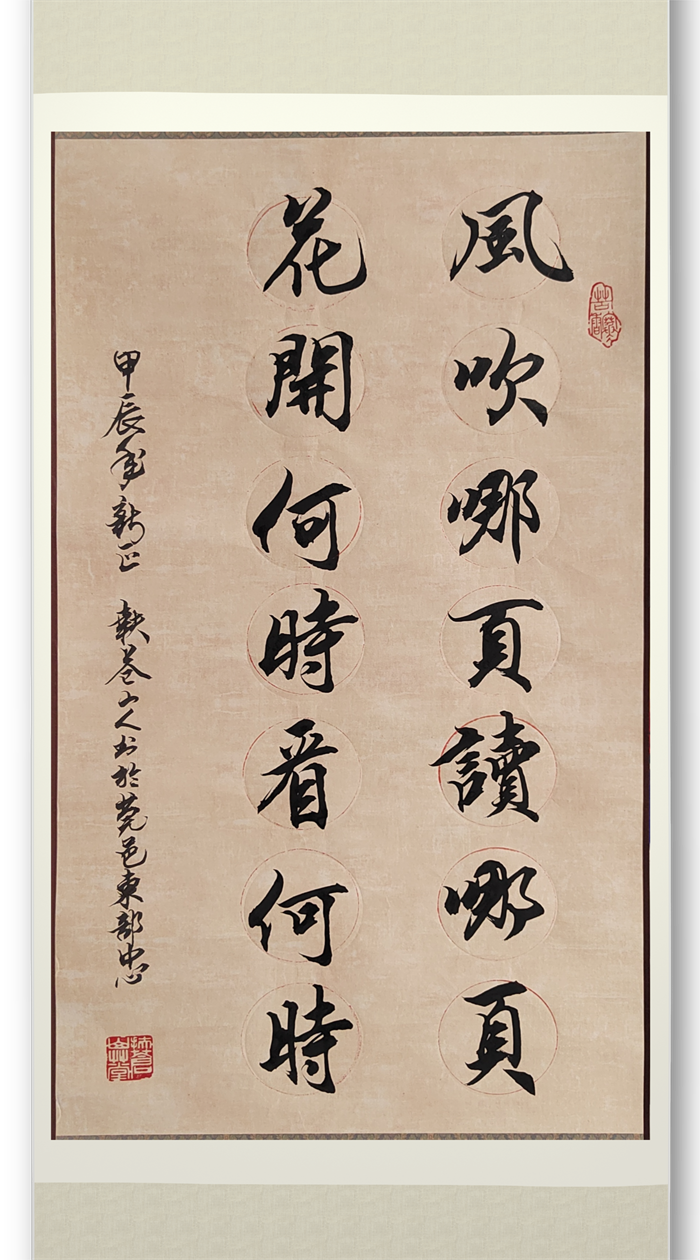 風吹哪頁讀哪頁
花開何時看何時
甲辰年新正 軼卷山人书於莞邑東部中心